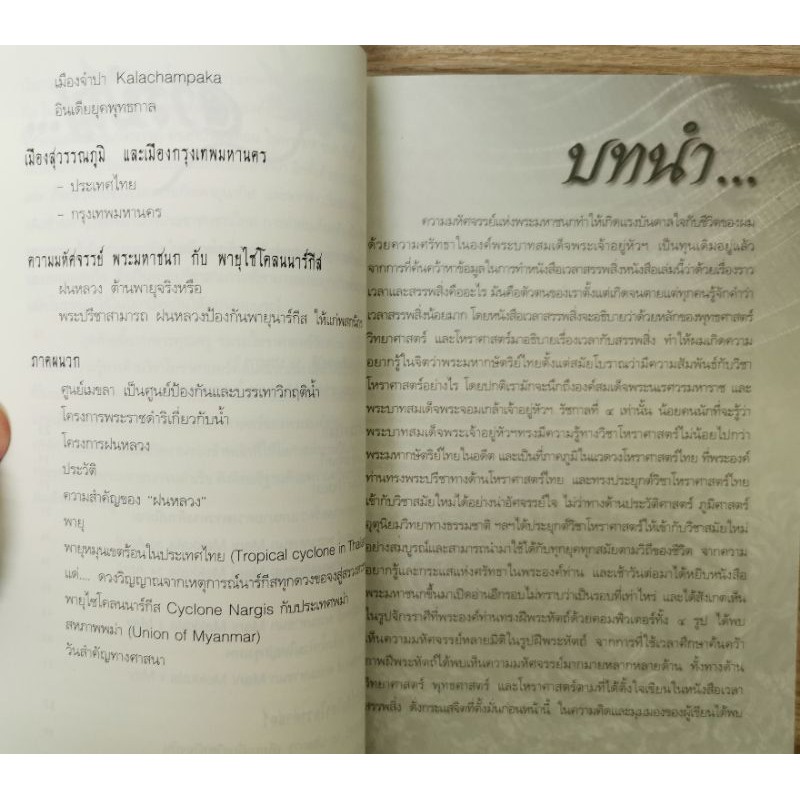 เมืองจำปา Kalachampaka
อินเดียยุคพุทธกาล
เมืองสุวรรณภูมิ และเมืองกรุงเทพมหานคร
- ประเทศไทย
- กรุงเทพมหานคร
ความมหัศจรรย์ พระมหาชนก กับ พายุไซโคลนนาร์กีส
ฝนหลวง ต้านพายุจริงหรือ
พระปรีชาสามารถ ฝนหลวงป้องกันพายุนาร์กีส ให้แก่พสกนิกร
ภาคผนวก
ศูนย์เมขลา เป็นศูนย์ป้องกันและบรรเทาวิกฤติน้ำ
โครงการพระราชดำริเกี่ยวกับน้ำ
โครงการฝนหลวง
ประวัติ
ความสำคัญของ "ฝนหลวง"
พายุ
พายุหมุนเขตร้อนในประเทศไทย (Tropical cyclone in
แด่.... ดวงวิญญาณจากเหตุการณ์นาร์กีสทุกดวงขอจงสู่
พายุไซโคลนนาร์กีส Cyclone Nargis กับประเทศพม่า
สหภาพพม่า (Union of Myanmar)
วันสำคัญทางศาสนา
บทนำ...
ความมหัศจรรย์แห่งพระมหาชนกทำให้เกิดแรงบันดาลใจกับชีวิตของผม
ด้วยความศรัทธาในองค์พระบาทสมเด็จพระเจ้าอยู่หัวฯ เป็นทุนเดิมอยู่แล้ว
จากการที่ค้นคว้าหาข้อมูลในการทำหนังสือเวลาสรรพสิ่งหนังสือเล่มนี้ว่าด้วยเรื่องราว
เวลาและสรรพสิ่งคืออะไร มันคือตัวตนของเราตั้งแต่เกิดจนตายแต่ทุกคนรู้จักคำว่า
เวลาสรรพสิ่งน้อยมาก โดยหนังสือเวลาสรรพสิ่งจะอธิบายว่าด้วยหลักของพุทธศาสตร์
วิทยาศาสตร์ และโหราศาสตร์มาอธิบายเรื่องเวลากับสรรพสิ่ง ทำให้ผมเกิดความ
อยากรู้ในจิตว่าพระมหากษัตริย์ไทยตั้งแต่สมัยโบราณว่ามีความสัมพันธ์กับวิชา
โหราศาสตร์อย่างไร โดยปกติเรามักจะนึกถึงองค์สมเด็จพระนเรศวรมหาราช และ
พระบาทสมเด็จพระจอมเกล้าเจ้าอยู่หัวฯ รัชกาลที่ ๔ เท่านั้น น้อยคนนักที่จะรู้ว่า
พระบาทสมเด็จพระเจ้าอยู่หัวฯทรงมีความรู้ทางวิชาโหราศาสตร์ไม่น้อยไปกว่า
พระมหากษัตริย์ไทยในอดีต และเป็นที่ภาคภูมิในแวดวงโหราศาสตร์ไทย ที่พระองค์
ท่านทรงพระปรีชาทางด้านโหราศาสตร์ไทย และทรงประยุกต์วิชาโหราศาสตร์ไทย
เข้ากับวิชาสมัยใหม่ได้อย่างน่าอัศจรรย์ใจ ไม่ว่าทางด้านประวัติศาสตร์ ภูมิศาสตร์
อุตุนิยมวิทยาทางธรรมชาติ ฯลฯได้ประยุกต์วิชาโหราศาสตร์ให้เข้ากับวิชาสมัยใหม่
อย่างสมบูรณ์และสามารถนำมาใช้ได้กับทุกยุคทุกสมัยตามวิถีของชีวิต จากความ
อยากรู้และกระแสแห่งศรัทธาในพระองค์ท่าน และเช้าวันต่อมาได้หยิบหนังสือ
พระมหาชนกขึ้นมาเปิดอ่านอีกรอบไม่ทราบว่าเป็นรอบที่เท่าไหร่ และได้สังเกตเห็น
ในรูปจักรราศีที่พระองค์ท่านทรงฝีพระหัตถ์ด้วยคอมพิวเตอร์ทั้ง ๔ รูป ได้พบ
เห็นความมหัศจรรย์หลายมิติในรูปฝีพระหัตถ์ จากการที่ใช้เวลาศึกษาค้นคว้า
ภาพฝีพระหัตถ์ได้พบเห็นความมหัศจรรย์มากมายหลากหลายด้าน ทั้งทางด้าน
วิทยาศาสตร์ พุทธศาสตร์ และโหราศาสตร์ตามที่ได้ตั้งใจเขียนในหนังสือเวลา
สรรพสิ่ง ดั่งกระแสจิตที่ตั้งมั่นก่อนหน้านี้ ในความคิดและมุมมองของผู้เขียนได้พบ